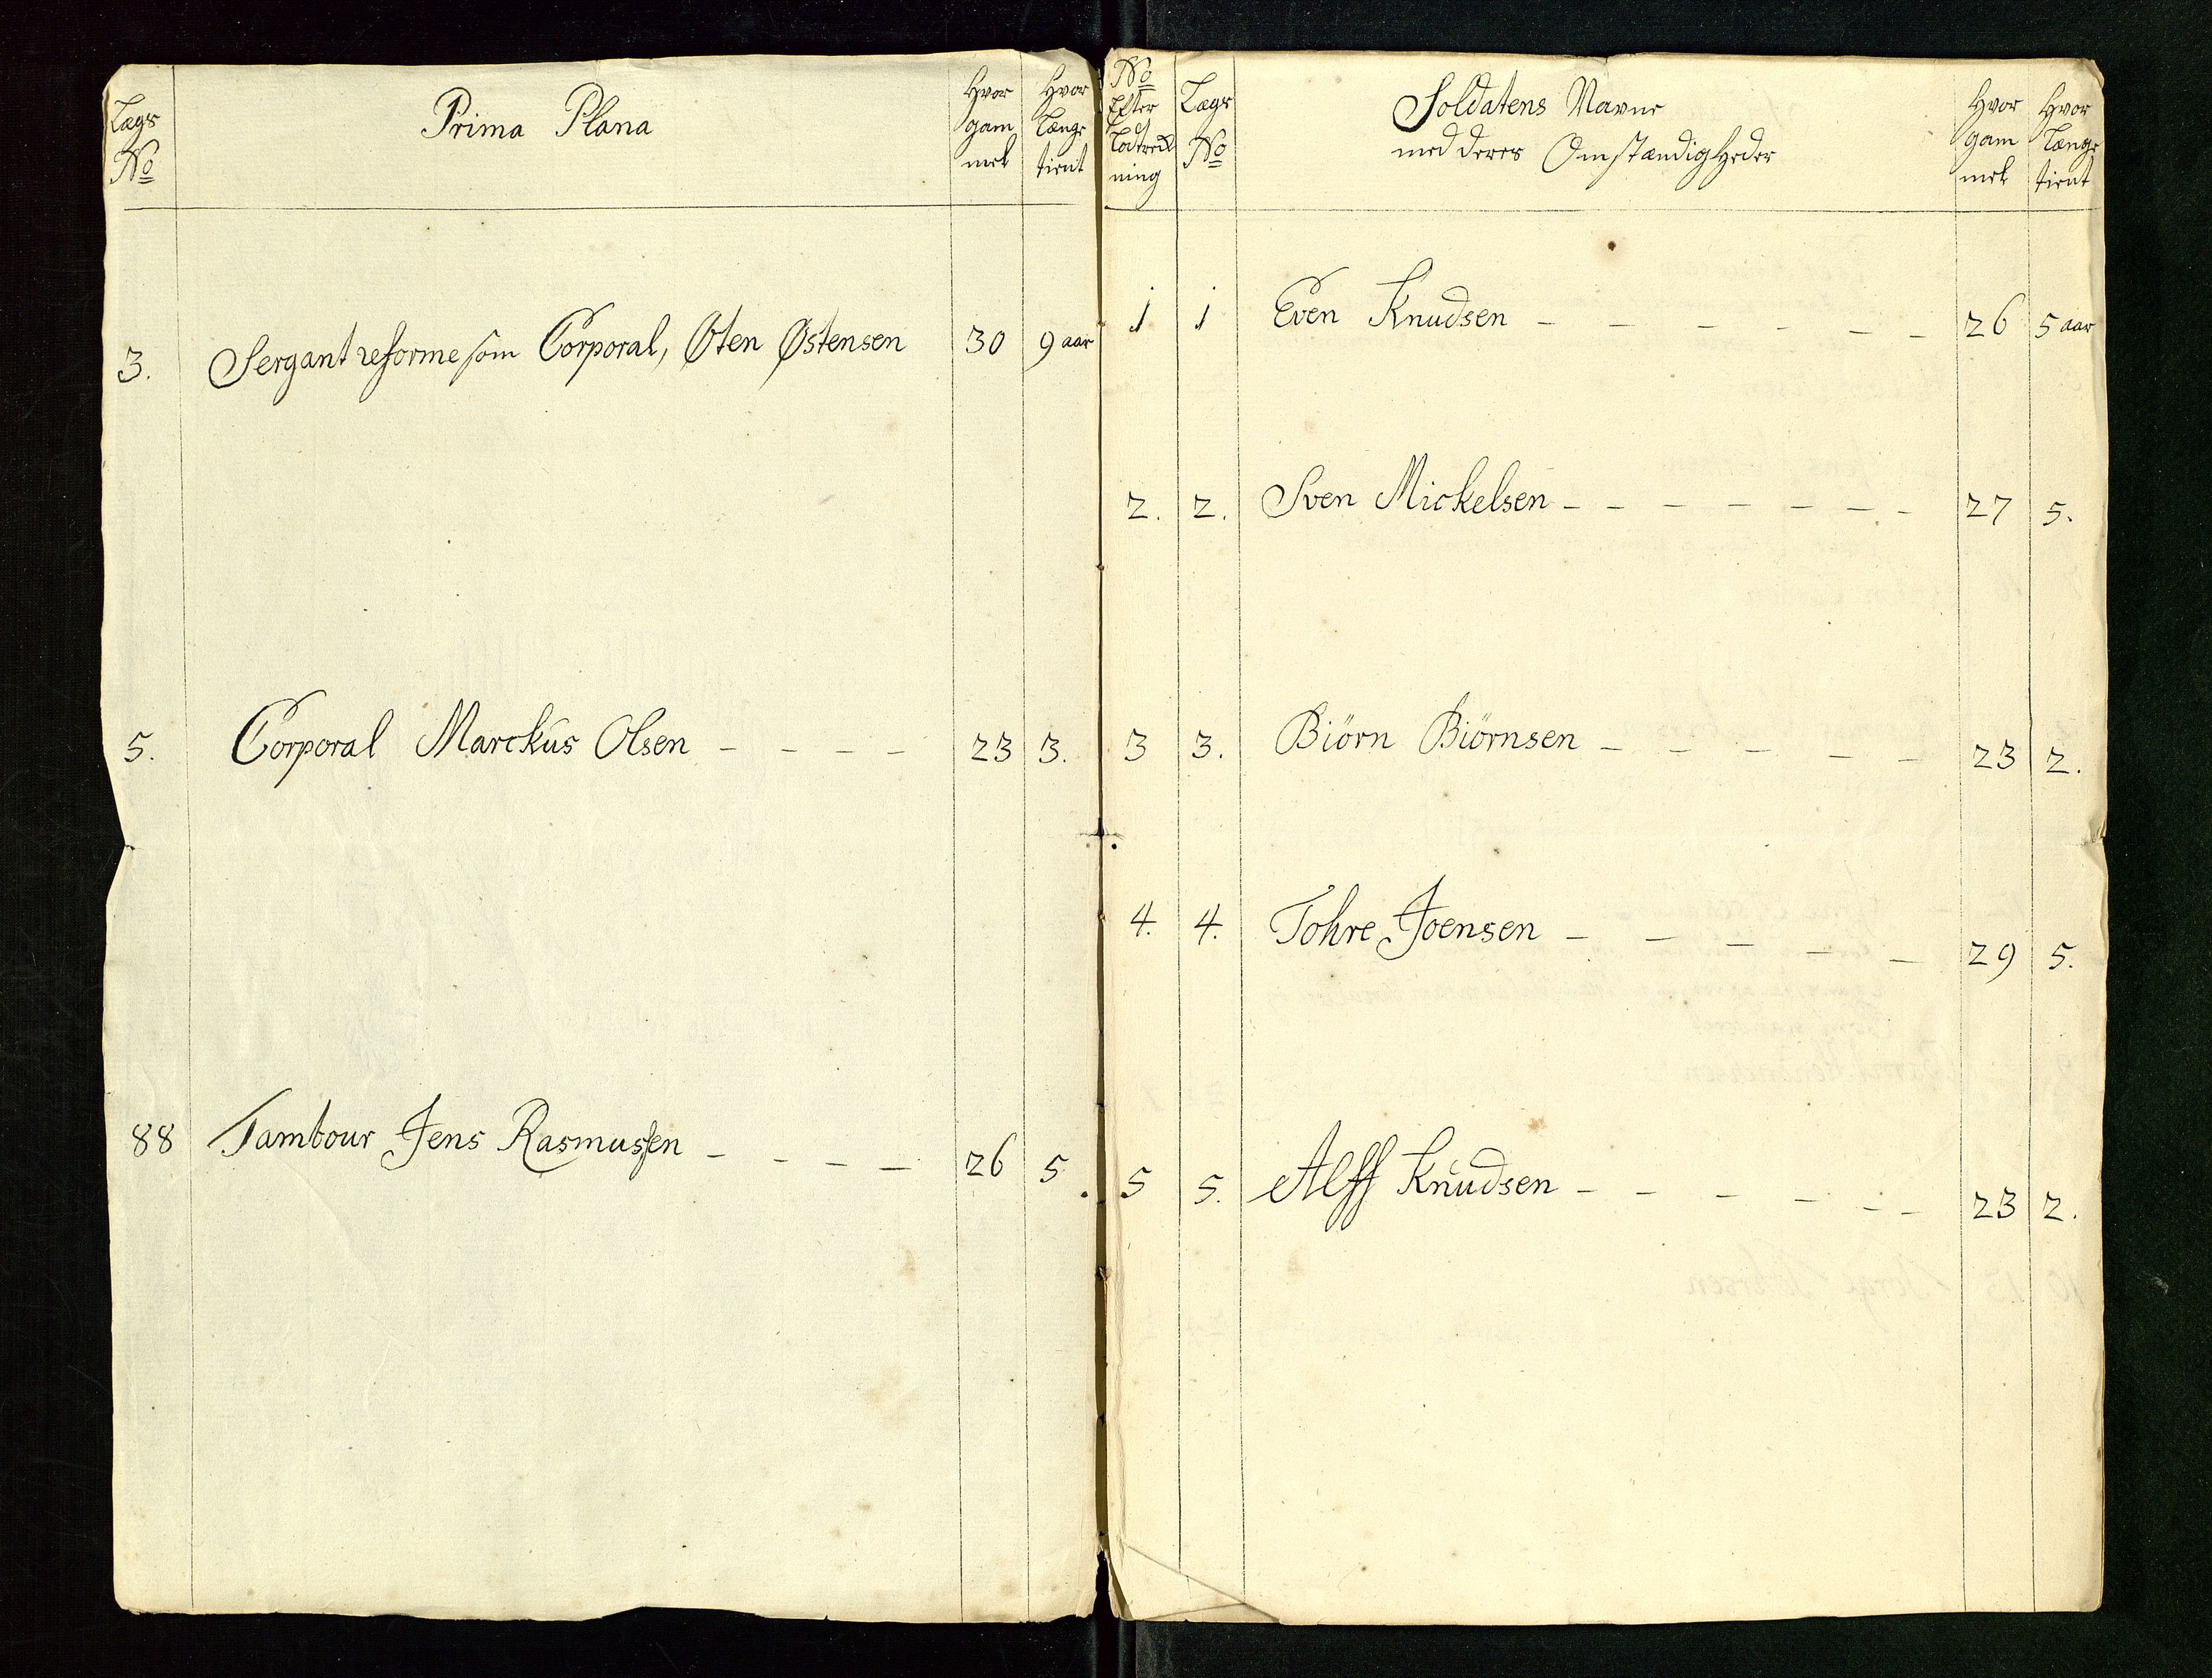 Lægs
No
Prima Plana
Hvor
gam
mel
Hvor
Længe
tient
3. Sergant reforme som Corporal, Østen Østensen 30 9 aar
5. Corporal Marckus Olsen - - - - 23 3.
88 Tambour Jens Rasmussen - - - - 26 5.
No
Efter
Lodtreck
ning
Lægs
No
Soldatens Navne
med deres Omstændigheder
Hvor
gam
mel
Hvor
Længe
tient
1 1 Even Knudsen - - - - - - 26 5 aar
2. 2. Sven Mickelsen - - - - - - - - 27 5.
3 3. Biörn Biörnsen - - - - - 23 2.
4. 4. Tohre Joensen - - - - - 29 5.
5 5. Alff Knudsen - - - - - - 23 2.